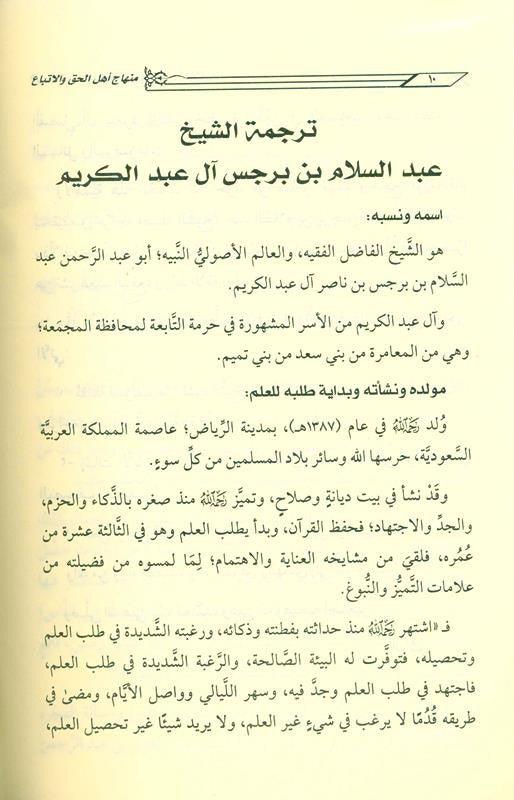 ١٠
منهاج أهل الحق والاتباع
ترجمة الشيخ
عبد السلام بن برجس آل عبد الكريم
اسمه ونسبه:
هو الشَّيخ الفاضل الفقيه، والعالم الأصوليُّ النَّبيه؛ أبو عبد الرَّحمن عبد
السَّلام بن برجس بن ناصر آل عبد الكريم.
وآل عبد الكريم من الأسر المشهورة في حرمة التَّابعة لمحافظة المجمَعة؛
وهي من المعامرة من بني سعد من بني تميم.
مولده ونشأته وبداية طلبه للعلم:
وُلد رَحِمَهُ اللَّهُ في عام (١٣٨٧هـ)، بمدينة الرِّياض؛ عاصمة المملكة العربيَّة
السَّعوديَّة، حرسها الله وسائر بلاد المسلمين من كلِّ سوءٍ.
وقَدْ نشأ في بيت ديانةٍ وصلاحٍ، وتميَّز رَحِمَهُ اللَّهُ منذ صغره بالذَّكاء والحزم،
والجدِّ والاجتهاد؛ فحفظ القرآن، وبدأ يطلب العلم وهو في الثَّالثة عشرة من
عُمُره، فلقيَ من مشايخه العناية والاهتمام؛ لِمَا لمسوه من فضيلته من
علامات التَّميُّز والنُّبوغ.
فـ «اشتهر رَحِمَهُ اللَّهُ منذ حداثته بفطنته وذكائه، ورغبته الشَّديدة في طلب العلم
وتحصيله، فتوفَّرت له البيئة الصَّالحة، والرَّغبة الشَّديدة في طلب العلم،
فاجتهد في طلب العلم وجدَّ فيه، وسهر اللَّيالي وواصل الأيَّام، ومضىٰ في
طريقه قُدُمًا لا يرغب في شيءٍ غير العلم، ولا يريد شيئًا غير تحصيل العلم،